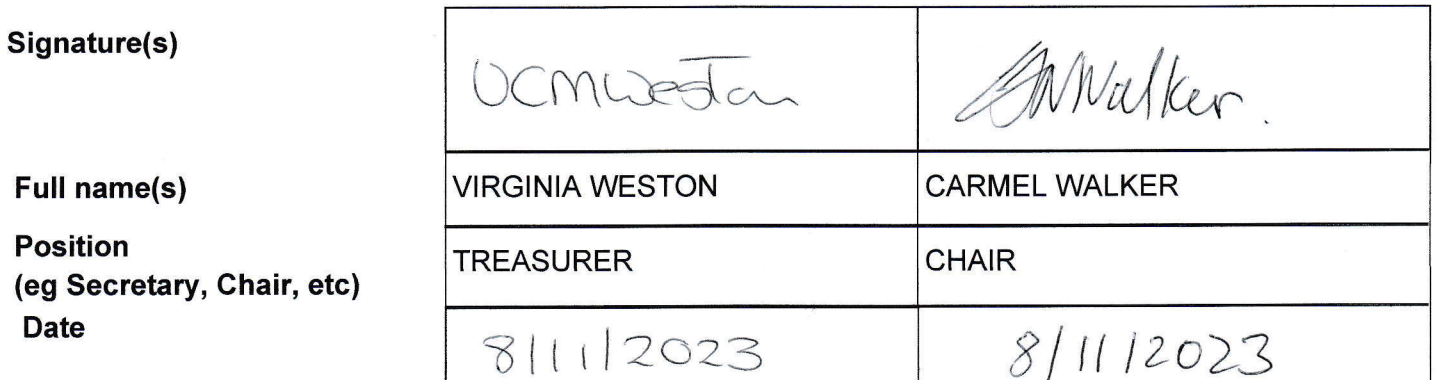 Signature(s)
VCMWeston Walker.
Full name(s) VIRGINIA WESTON CARMEL WALKER
Position
(eg Secretary, Chair, etc) TREASURER CHAIR
Date 8/11/2023 8/11/2023